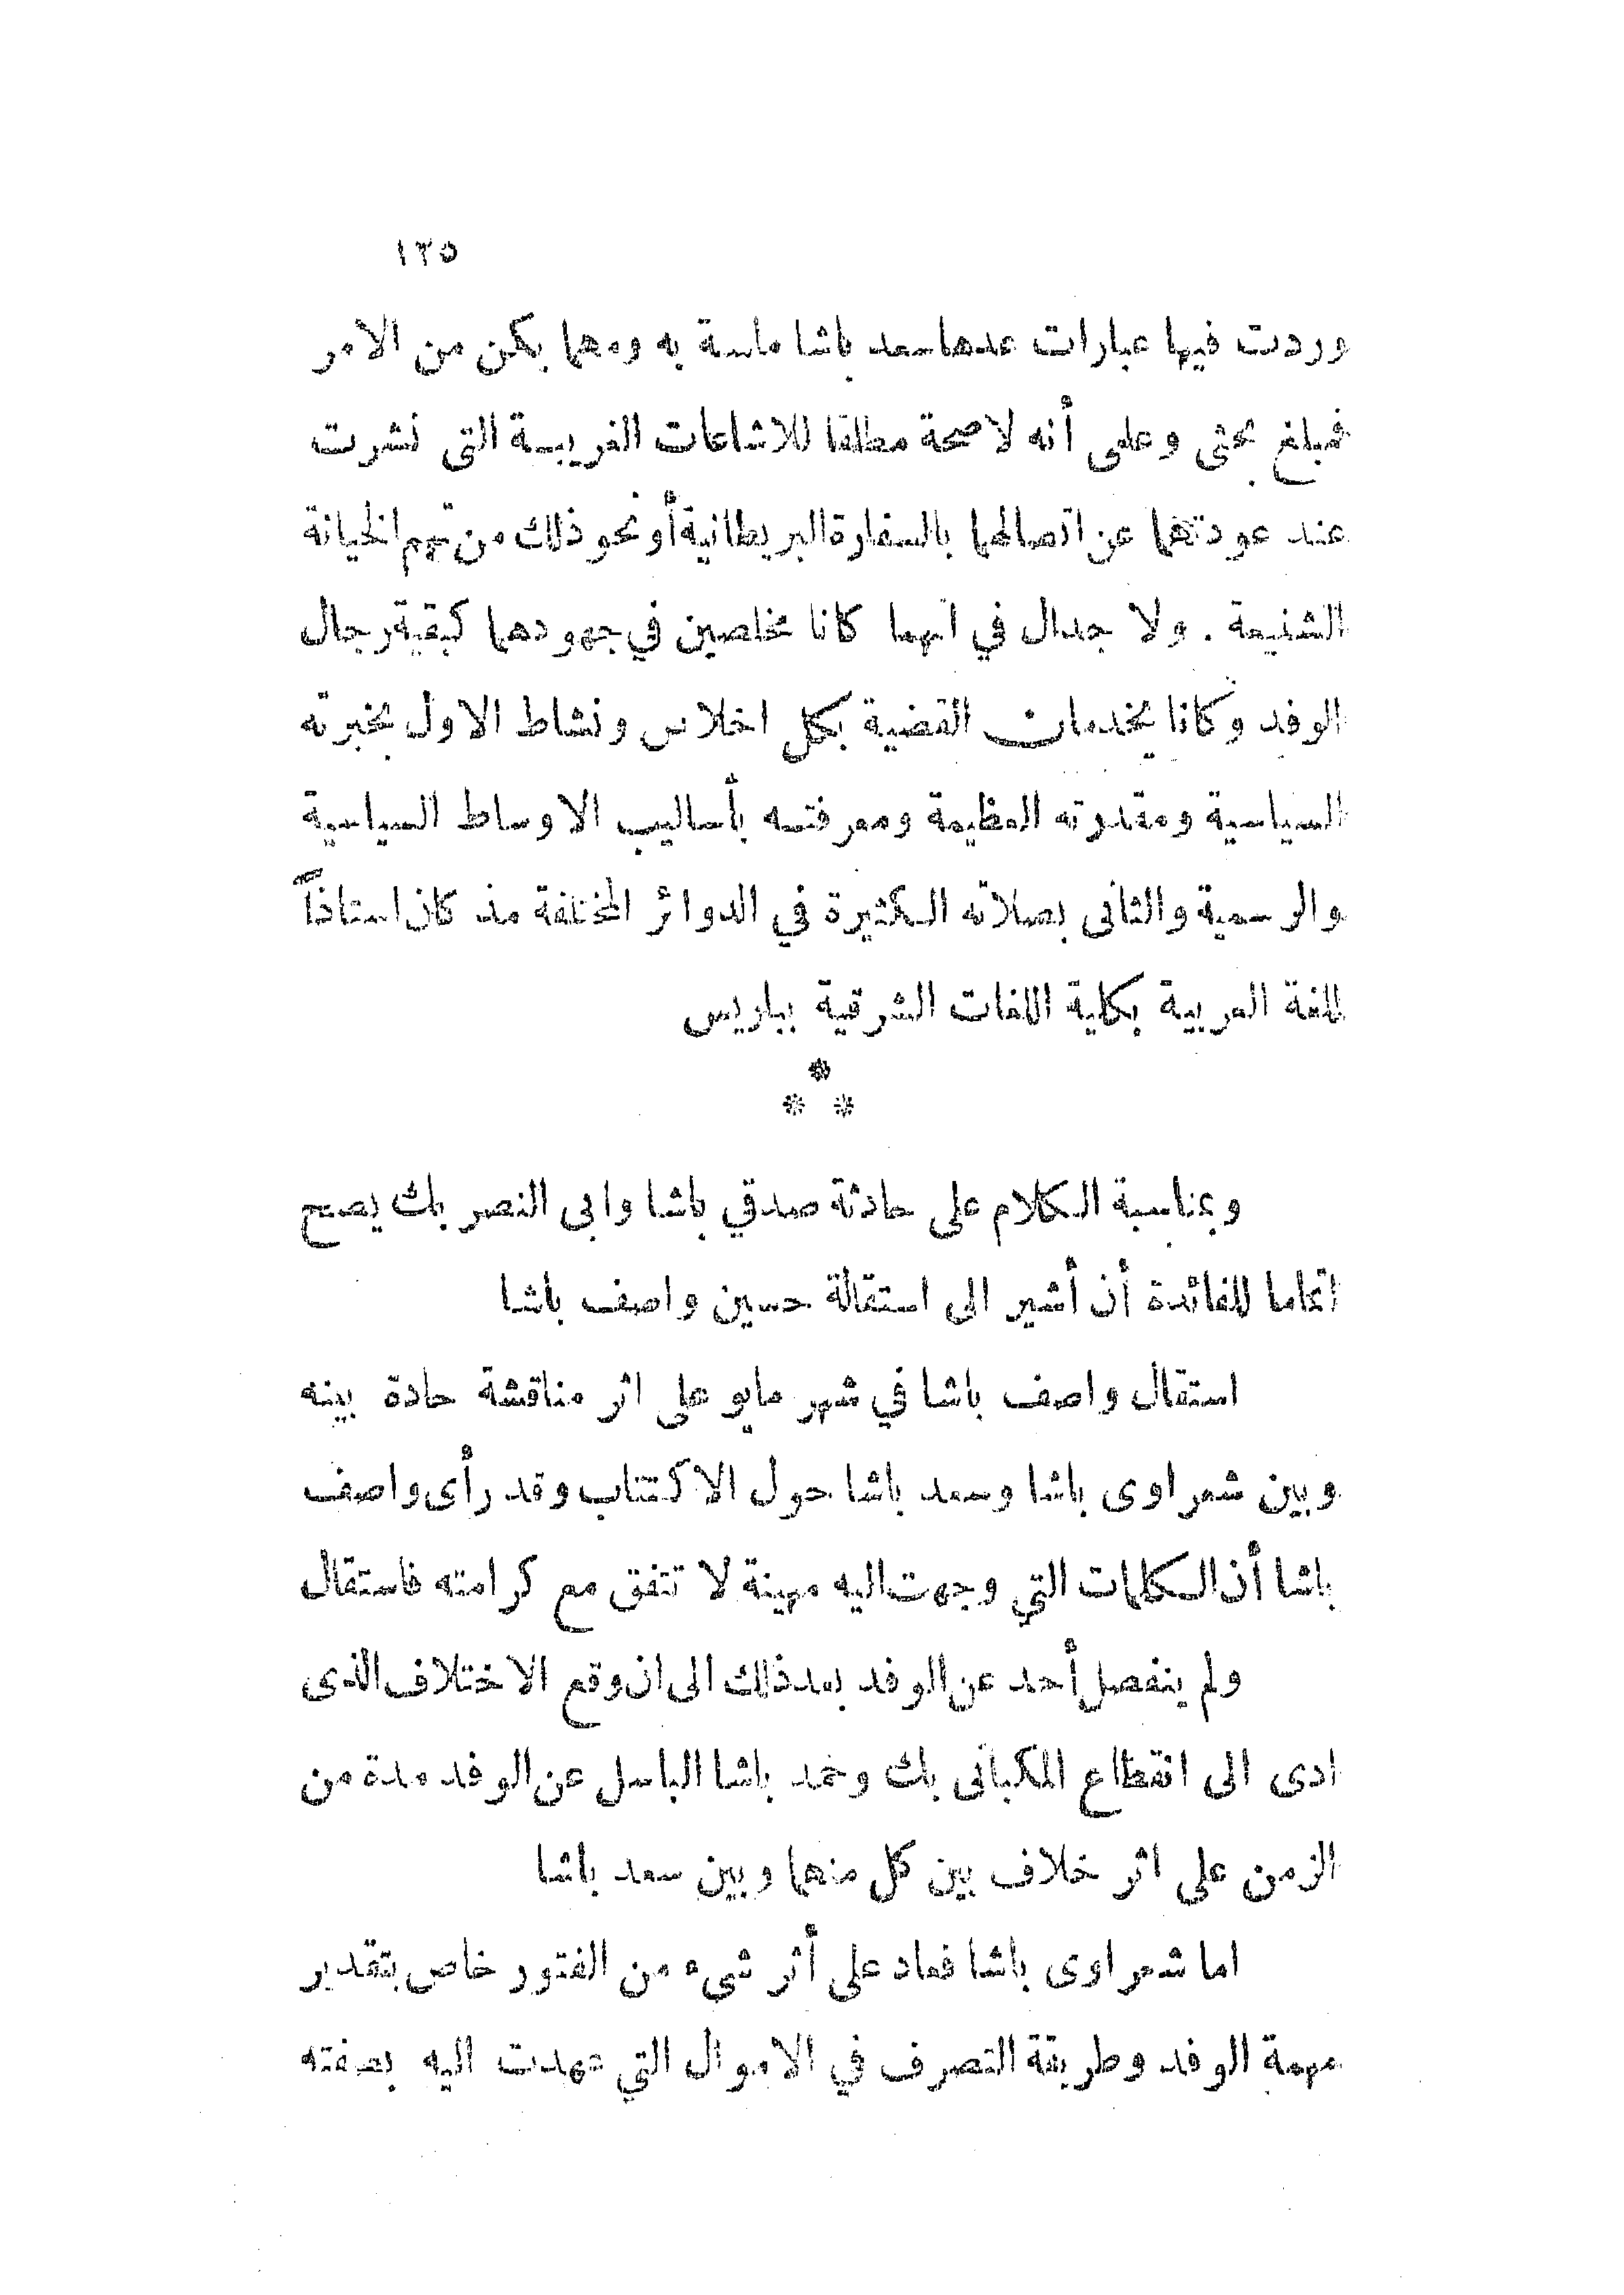 ١٣٥
وردت فيها عبارات عدها سعد باشا ماسة به ومهما يكن من الامر
فمبلغ بحثى وعلمى أنه لا صحة مطلقا للاشاعات الغريبة التى نشرت
عند عودتهما عن اتصالهما بالسفارة البريطانية أو نحو ذلك من تهم الخيانة
الشنيعة . ولا جدال في انهما كانا مخلصين في جهودهما كبقية رجال
الوفد وكانا يخدمان القضية بكل اخلاص ونشاط الاول بخبرته
السياسية ومقدرته العظيمة ومعرفته بأساليب الاوساط السياسية
والرسمية والثانى بصلاته الكثيرة في الدوائر المختلفة مذ كان استاذاً
للغة العربية بكلية اللغات الشرقية بباريس
*
* *
وبمناسبة الكلام على حادثة صدقي باشا وابى النصر بك يصح
اتماما للفائدة أن أشير الى استقالة حسين واصف باشا
استقال واصف باشا في شهر مايو على اثر مناقشة حادة بينه
وبين شعراوى باشا وسعد باشا حول الاكتتاب وقد رأى واصف
باشا أن الكلمات التي وجهت اليه مهينة لا تتفق مع كرامته فاستقال
ولم ينفصل أحد عن الوفد بعد ذلك الى ان وقع الاختلاف الذى
ادى الى انقطاع المكباتى بك وحمد باشا الباسل عن الوفد مدة من
الزمن على اثر خلاف بين كل منهما وبين سعد باشا
اما شعراوى باشا فعاد على أثر شيء من الفتور خاص بتقدير
مهمة الوفد وطريقة التصرف في الاموال التي عهدت اليه بصفته